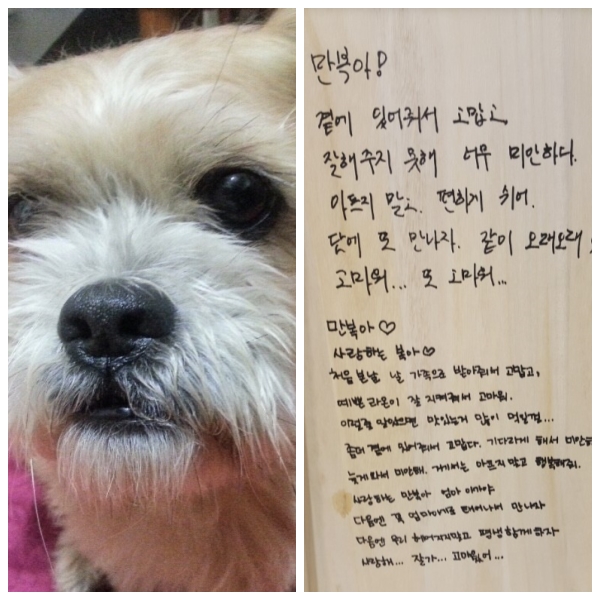 만복아!
곁에 있어줘서 고맙고
잘해주지 못해 너무 미안하다.
아프지 말고. 편하게 쉬어.
담에 또 만나자. 같이 오래오래
고마워... 또 고마워...
만복아♡
사랑하는 복아♡
처음 본날 날 가족으로 받아줘서 고맙고,
예쁜 라온이 잘 지켜줘서 고마워.
이럴줄 알았으면 맛있는거 많이 먹일껄...
좀더 곁에 있어줘서 고맙다. 기다리게 해서 미안
늦게와서 미안해. 거기서는 아프지 말고 행복해줘.
사랑하는 만복아 엄마 아가야
다음엔 꼭 엄마아기로 태어나서 만나자
다음엔 우리 헤어지지말고 평생 함께하자
사랑해... 잘가... 고마웠어...